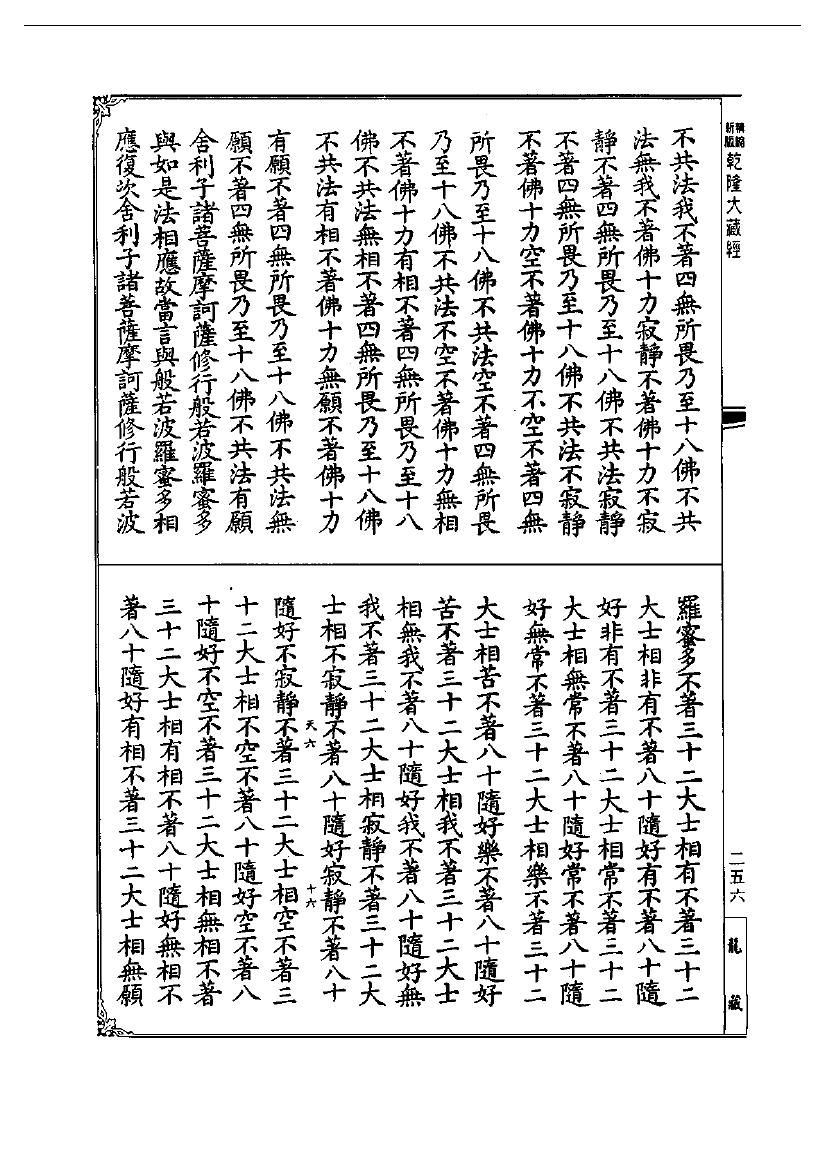 新版精縮乾隆大藏經
不共法我不著四無所畏乃至十八佛不共
法無我不著佛十力寂靜不著佛十力不寂
靜不著四無所畏乃至十八佛不共法寂靜
不著四無所畏乃至十八佛不共法不寂靜
不著佛十力空不著佛十力不空不著四無
所畏乃至十八佛不共法空不著四無所畏
乃至十八佛不共法不空不著佛十力無相
不著佛十力有相不著四無所畏乃至十八
佛不共法無相不著四無所畏乃至十八佛
不共法有相不著佛十力無願不著佛十力
有願不著四無所畏乃至十八佛不共法無
願不著四無所畏乃至十八佛不共法有願
舍利子諸菩薩摩訶薩修行般若波羅蜜多
與如是法相應故當言與般若波羅蜜多相
應復次舍利子諸菩薩摩訶薩修行般若波
羅蜜多不著三十二大士相有不著三十二
大士相非有不著八十隨好有不著八十隨
好非有不著三十二大士相常不著三十二
大士相無常不著八十隨好常不著八十隨
好無常不著三十二大士相樂不著三十二
大士相苦不著八十隨好樂不著八十隨好
苦不著三十二大士相我不著三十二大士
相無我不著八十隨好我不著八十隨好無
我不著三十二大士相寂靜不著三十二大
士相不寂靜不著八十隨好寂靜不著八十
天六
十六
隨好不寂靜不著三十二大士相空不著三
十二大士相不空不著八十隨好空不著八
十隨好不空不著三十二大士相無相不著
三十二大士相有相不著八十隨好無相不
著八十隨好有相不著三十二大士相無願
二五六
龍藏